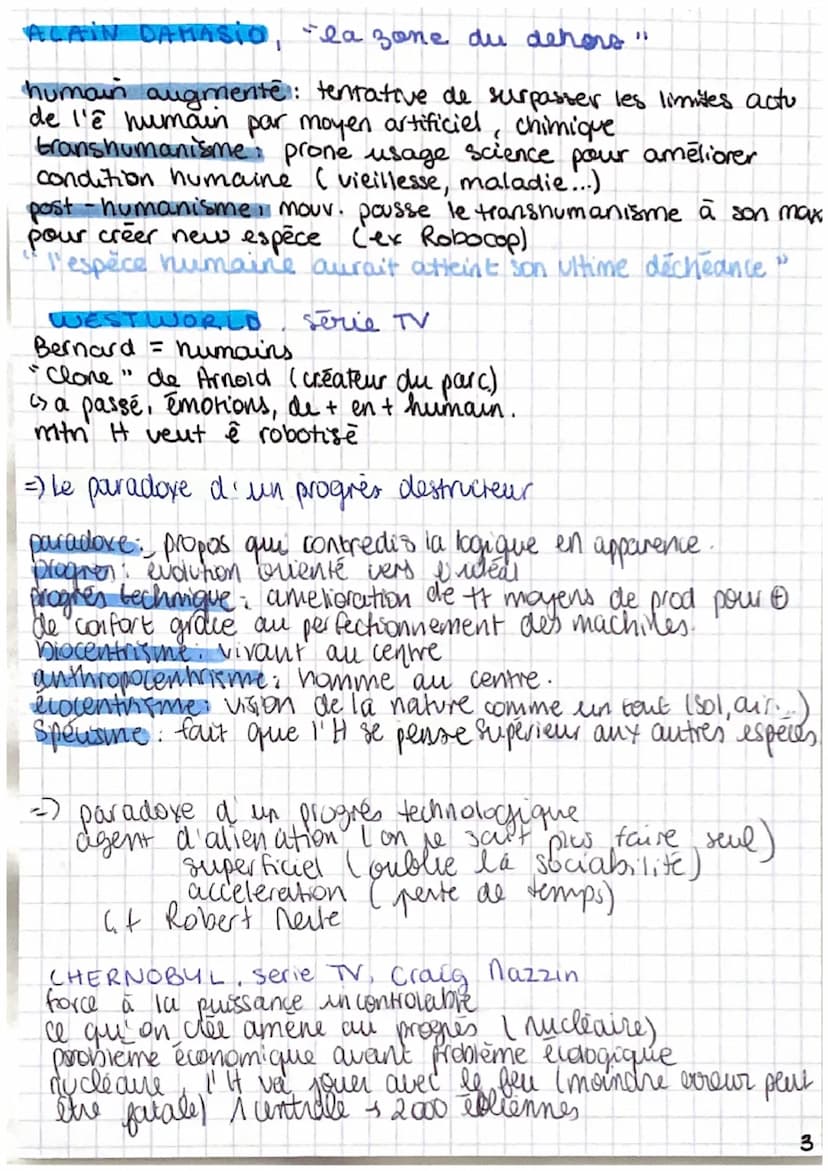 ALAIN DAMASIO, "la zone du dehors"
humain augmenté : tentative de surpasser les limites actu
de l'ê humain par moyen artificiel, chimique
transhumanisme : prone usage science pour améliorer
condition humaine ( vieillesse, maladie...)
post-humanisme : mouv. pousse le transhumanisme à son max
pour créer new espèce (ex Robocop)
"l'espèce humaine aurait atteint son ultime déchéance"
WESTWORLD, série TV
Bernard = humains
"Clone" de Arnold (créateur du parc)
↳ a passé, émotions, de + en + humain.
mtn H veut ê robotisé
=> Le paradoxe d'un progrès destructeur
paradoxe : propos qui contredis la logique en apparence.
progrès : évolution orienté vers l'idéal
progrès technique : amelioration de tt moyens de prod pour ⊕
de confort grâce au perfectionnement des machines.
biocentrisme : vivant au centre
anthropocentrisme : homme au centre.
écocentrisme : vision de la nature comme un tout (sol, air...)
Spécisme : fait que l'H se pense supérieur aux autres espèces
=> paradoxe d'un progrès technologique
agent d'alienation (on ne sait plus faire seul)
superficiel (oublie la sociabilité)
acceleration (perte de temps)
↳ Robert
CHERNOBYL, serie TV, Craig Mazzin
force à la puissance incontrolable
ce qu'on crée amène au progrès (nucléaire)
problème économique avant problème écologique
nucléaire, l'H va jouer avec le feu (moindre erreur peut
être fatale) 1 centrale → 2000 éoliennes
3